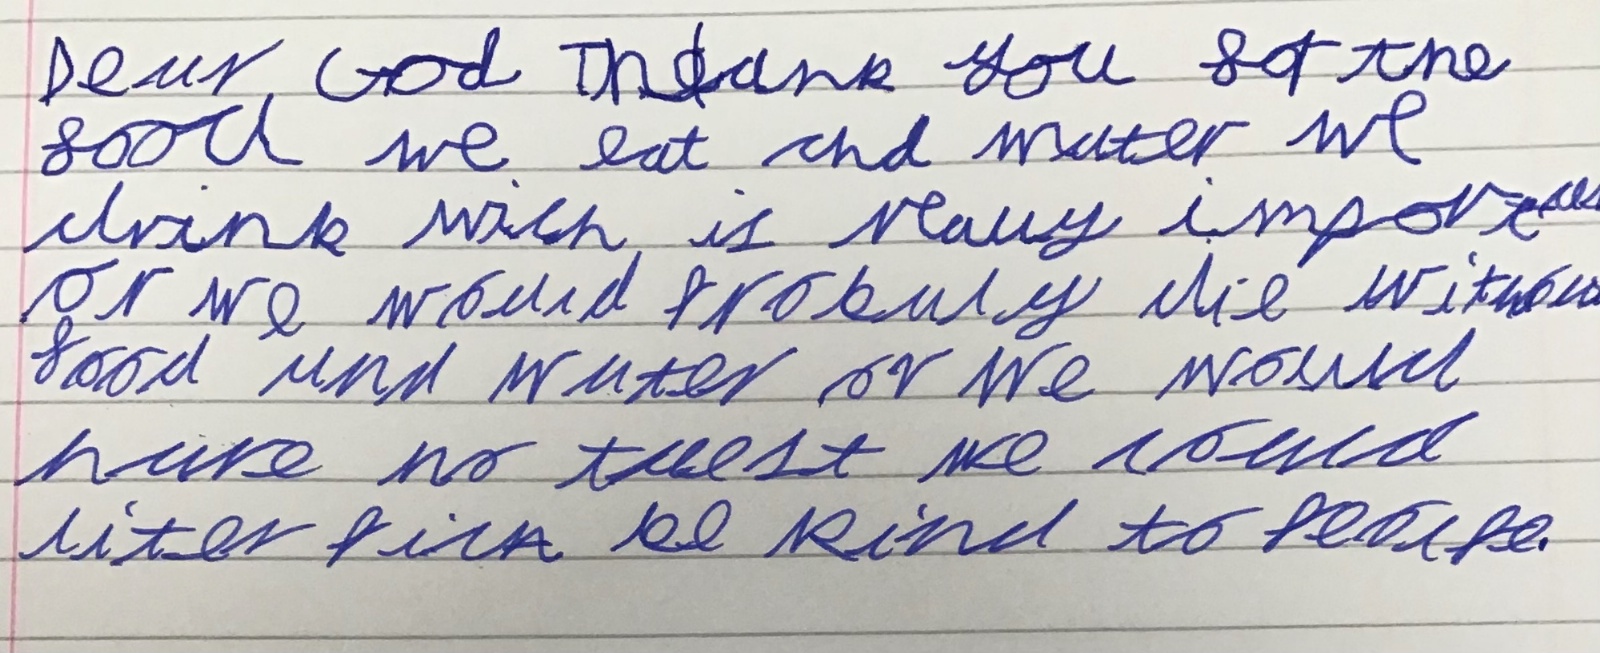 Dear God Thank you for the
food we eat and water we
drink wich is really important
or we would probably die without
food and water or we would
have no tuest we could
liter pick be kind to people.